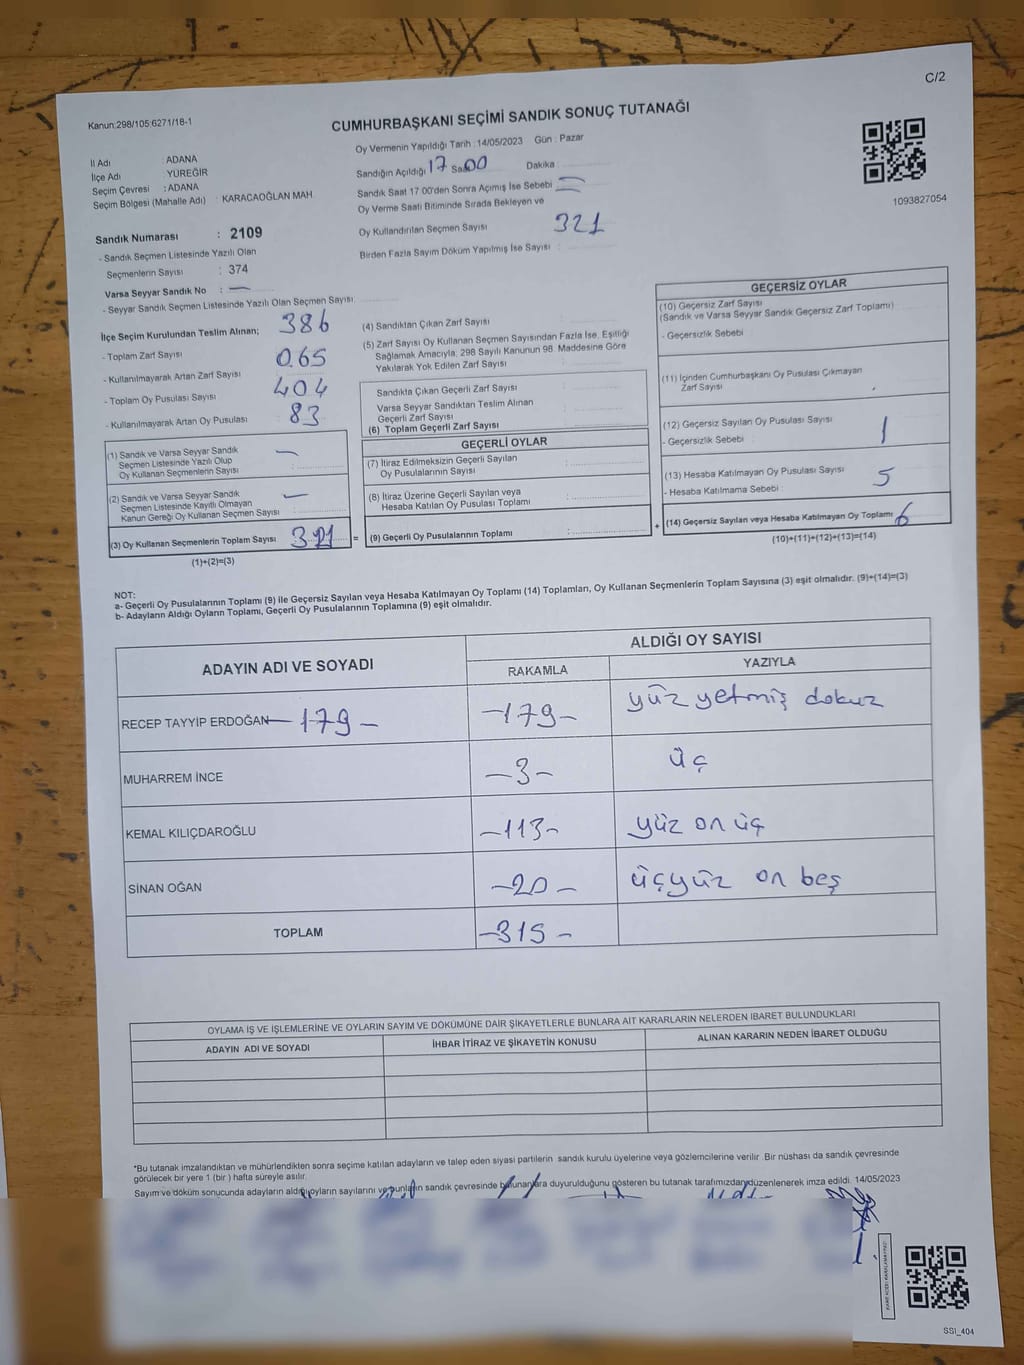 C/2
Kanun:298/105:6271/18-1
CUMHURBAŞKANI SEÇİMİ SANDIK SONUÇ TUTANAĞI
Oy Vermenin Yapıldığı Tarih : 14/05/2023 Gün : Pazar
İl Adı : ADANA
İlçe Adı : YÜREĞİR
Seçim Çevresi : ADANA
Seçim Bölgesi (Mahalle Adı) : KARACAOĞLAN MAH
Sandığın Açıldığı 17 Saat 00 Dakika
Sandık Saat 17 00'den Sonra Açımış İse Sebebi
Oy Verme Saati Bitiminde Sırada Bekleyen ve
Oy Kullandırılan Seçmen Sayısı 321
Birden Fazla Sayım Döküm Yapılmış İse Sayısı :
1093827054
Sandık Numarası : 2109
- Sandık Seçmen Listesinde Yazılı Olan
Seçmenlerin Sayısı : 374
Varsa Seyyar Sandık No : —
- Seyyar Sandık Seçmen Listesinde Yazılı Olan Seçmen Sayısı
İlçe Seçim Kurulundan Teslim Alınan;
- Toplam Zarf Sayısı 386
- Kullanılmayarak Artan Zarf Sayısı 065
- Toplam Oy Pusulası Sayısı 404
- Kullanılmayarak Artan Oy Pusulası 83
(1) Sandık ve Varsa Seyyar Sandık
Seçmen Listesinde Yazılı Olup
Oy Kullanan Seçmenlerin Sayısı : —
(2) Sandık ve Varsa Seyyar Sandık
Seçmen Listesinde Kayıtlı Olmayan
Kanun Gereği Oy Kullanan Seçmen Sayısı : —
(3) Oy Kullanan Seçmenlerin Toplam Sayısı 321 =
(1)+(2)=(3)
(4) Sandıktan Çıkan Zarf Sayısı :
(5) Zarf Sayısı Oy Kullanan Seçmen Sayısından Fazla İse, Eşitliği
Sağlamak Amacıyla; 298 Sayılı Kanunun 98. Maddesine Göre
Yakılarak Yok Edilen Zarf Sayısı :
Sandıkta Çıkan Geçerli Zarf Sayısı :
Varsa Seyyar Sandıktan Teslim Alınan
Geçerli Zarf Sayısı :
(6) Toplam Geçerli Zarf Sayısı :
GEÇERLİ OYLAR
(7) İtiraz Edilmeksizin Geçerli Sayılan
Oy Pusulalarının Sayısı :
(8) İtiraz Üzerine Geçerli Sayılan veya
Hesaba Katılan Oy Pusulası Toplamı :
(9) Geçerli Oy Pusulalarının Toplamı : +
GEÇERSİZ OYLAR
(10) Geçersiz Zarf Sayısı
(Sandık ve Varsa Seyyar Sandık Geçersiz Zarf Toplamı)
- Geçersizlik Sebebi :
(11) İçinden Cumhurbaşkanı Oy Pusulası Çıkmayan
Zarf Sayısı :
(12) Geçersiz Sayılan Oy Pusulası Sayısı 1
- Geçersizlik Sebebi :
(13) Hesaba Katılmayan Oy Pusulası Sayısı 5
- Hesaba Katılmama Sebebi :
(14) Geçersiz Sayılan veya Hesaba Katılmayan Oy Toplamı 6
(10)+(11)+(12)+(13)=(14)
NOT:
a- Geçerli Oy Pusulalarının Toplamı (9) ile Geçersiz Sayılan veya Hesaba Katılmayan Oy Toplamı (14) Toplamları, Oy Kullanan Seçmenlerin Toplam Sayısına (3) eşit olmalıdır. (9)+(14)=(3)
b- Adayların Aldığı Oyların Toplamı, Geçerli Oy Pusulalarının Toplamına (9) eşit olmalıdır.
ADAYIN ADI VE SOYADI
ALDIĞI OY SAYISI
RAKAMLA YAZIYLA
RECEP TAYYİP ERDOĞAN —179— —179— yüz yetmiş dokuz
MUHARREM İNCE —3— üç
KEMAL KILIÇDAROĞLU —113— yüz on üç
SİNAN OĞAN —20— üçyüz on beş
TOPLAM —315—
OYLAMA İŞ VE İŞLEMLERİNE VE OYLARIN SAYIM VE DÖKÜMÜNE DAİR ŞİKAYETLERLE BUNLARA AİT KARARLARIN NELERDEN İBARET BULUNDUKLARI
ADAYIN ADI VE SOYADI İHBAR İTİRAZ VE ŞİKAYETİN KONUSU ALINAN KARARIN NEDEN İBARET OLDUĞU
*Bu tutanak imzalandıktan ve mühürlendikten sonra seçime katılan adayların ve talep eden siyasi partilerin sandık kurulu üyelerine veya gözlemcilerine verilir .Bir nüshası da sandık çevresinde
görülecek bir yere 1 (bir ) hafta süreyle asılır.
Sayım ve döküm sonucunda adayların aldığı oyların sayılarını ve bunların sandık çevresinde bulunanlara duyurulduğunu gösteren bu tutanak tarafımızdan düzenlenerek imza edildi. 14/05/2023
SSI_404